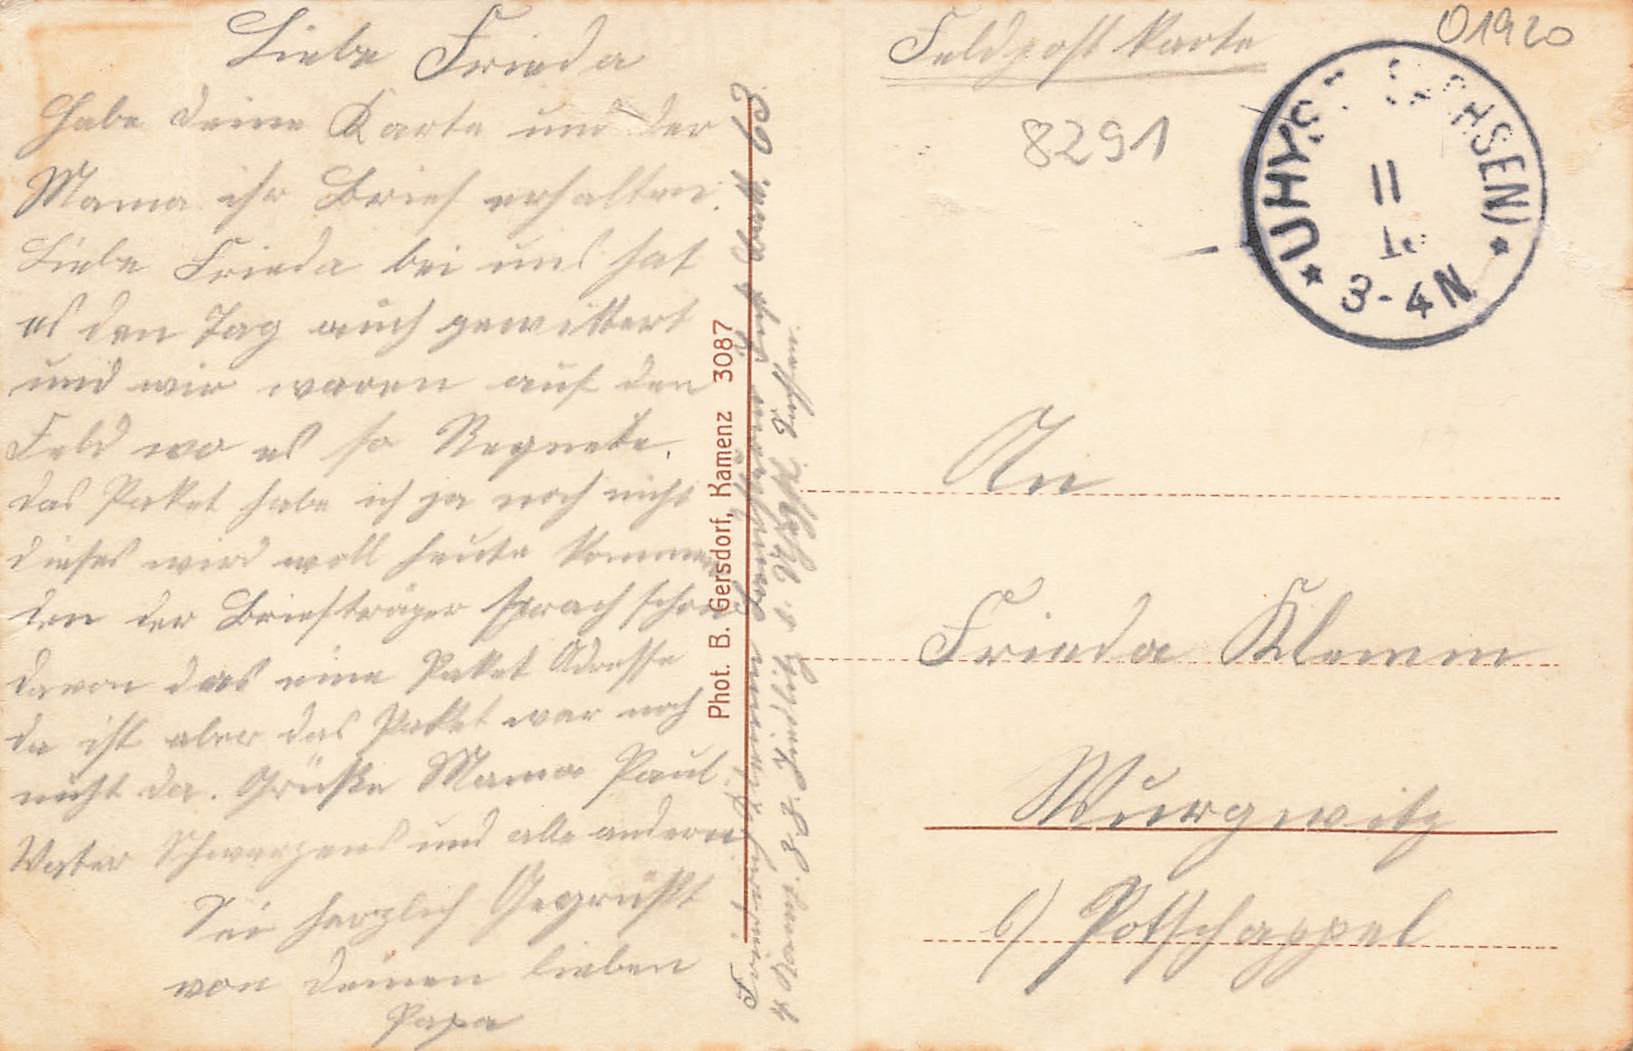 Liebe Frieda
Habe deine Karte und der
Mama ihr Brief erhalten.
Liebe Frieda bei uns hat
es den Tag auch gewittert
und wir waren auf den
Feld wo es so Regnete.
das Paket habe ich ja noch nicht
dieses wird woll heute kommen
den der Briefträger sprach schon
davon das eine Paket Adresse
da ist aber das Paket war noch
nicht da. Grüße Mama Paul
Vater Schwarzens und alle andern
Sei herzlich Gegrüßt
von deinen lieben
Papa
Phot. B. Gersdorf, Kamenz 3087
Feldpostkarte
01920
8291
UHYST SACHSEN)
11
3-4N
An
Frieda Klemm
Wurgwitz
b/ Potschappel